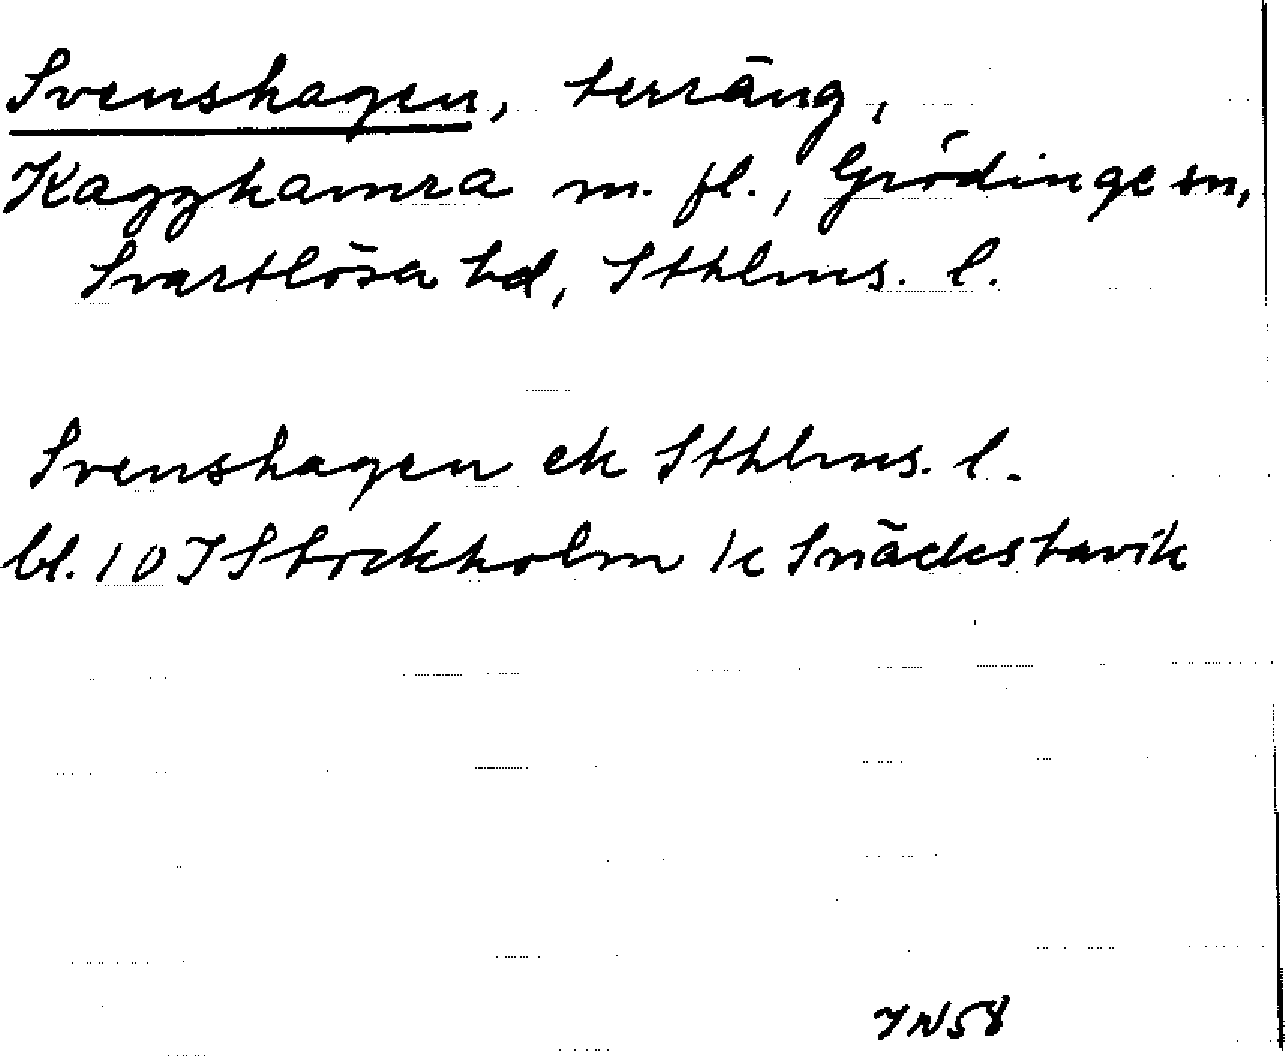 Svenshagen, terräng,
Kagghamra m. fl., Grödinge sn,
Svartlösa hd, Sthlms. l.
Svenshagen ek Sthlms. l.
bl. 10 I Stockholm 1c Snäckstavik
IN58